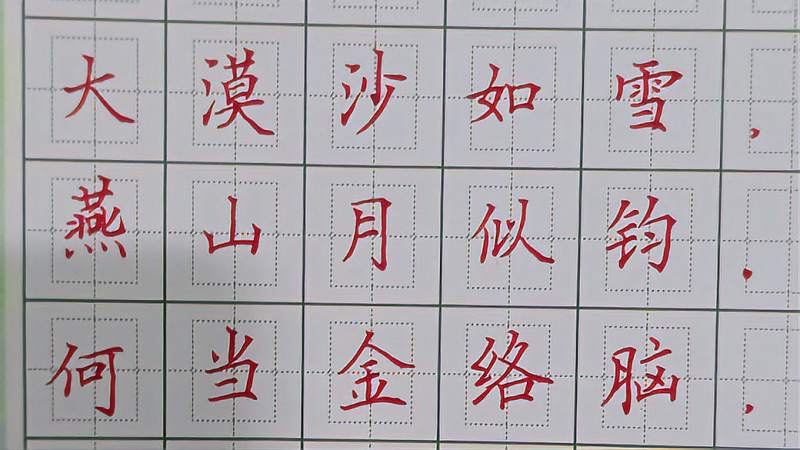 大漠沙如雪，
燕山月似钧，
何当金络脑，